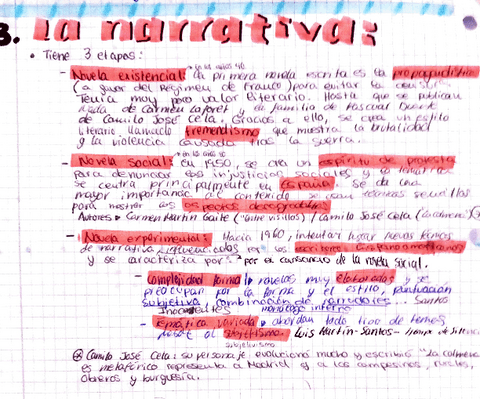 3. la narrativa:
• Tiene 3 etapas:
en los años 40
- Novela existencial: la primera novela escrita es la propagandística
(a favor del Régimen de Franco) para evitar la censura.
Tenía muy poco valor literario. Hasta que se publican
Nada de Carmen Laforet y la familia de Pascual Duarte
de Camilo José Cela. Gracias a ello, se crea un estilo
literario llamado tremendismo que muestra la brutalidad
y la violencia causada tras la guerra.
en los años 50
- Novela social: en 1950, se crea un espíritu de protesta
para denunciar las injusticias sociales y la temática
se centra principalmente en España. Se da una
mayor importancia contenido se usan técnicas sencillas
para mostrar los aspectos
Autores: Carmen Martín Gaite ("Entre visillos) / Camilo José Cela (La colmena)
- Novela experimental: Hacia 1960, intentar lugar nuevos temas
de narrativa, influenciados por los escritores hispanoamericanos
y se caracteriza por: por el cansancio de la novela social.
- complejidad formal: novelas muy elaboradas y se
preocupan por la forma y el estilo, puntuación
subjetiva, combinación de narradores... Santos
Inocentes monólogo interno
- temática variada: abordan todo tipo de temas
frente al subjetivismo. Luis Martín-Santos - Tiempo de silencio
subjetivismo
Camilo José Cela: su personaje evolucionó mucho y escribió "La colmena
es metafórico representa a Madrid y a los campesinos, rurales,
obreros y burguesía.